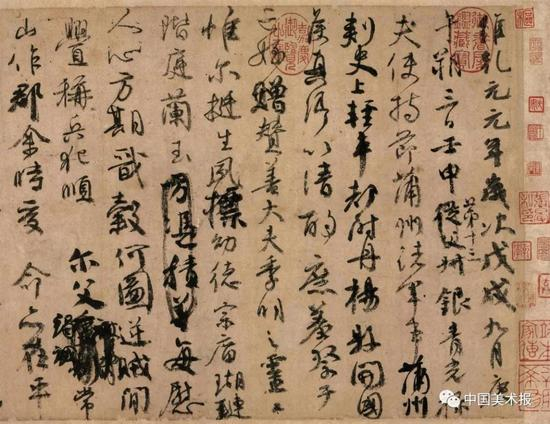 維乾元元年歲次戊戌九月庚
午朔三日壬申第十三從父銀青光祿
夫使持節蒲州諸軍事蒲州
刺史上輕車都尉丹楊縣開國
侯真卿以清酌庶羞祭于
亡姪贈贊善大夫季明之靈曰
惟尔挺生夙標幼德宗廟瑚璉
階庭蘭玉方憑積善每慰
人心方期戩穀何圖逆賊閒
釁稱兵犯順尔父竭誠常
山作郡余時受命亦在平
中国美术报